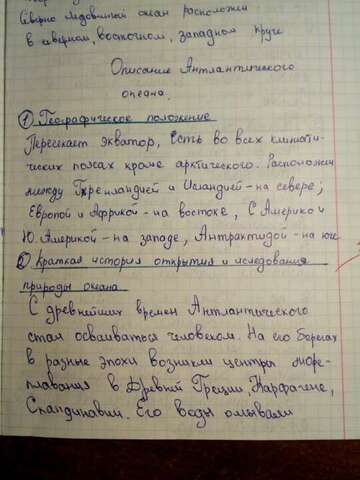 Северно Ледовитый океан расположен
в северном, восточном, западном круге
Описание Антлантического
океана.
1) Географическое положение
Пересекает экватор, есть во всех климати-
ческих поясах кроме арктического. Расположен
между Гренландией и Исландией - на севере,
Европой и Африкой - на востоке, С Америкой
Ю. Америкой - на западе, Антрактидой - на юге
2) Краткая история открытия и иследования
природы океана
С древнейших времен Антлантического
стал осваиваться человеком. На его берегах
в разные эпохи возникли центры море-
плавания в Древней Греции, Карфагене,
Скандинавии. Его воды омывали